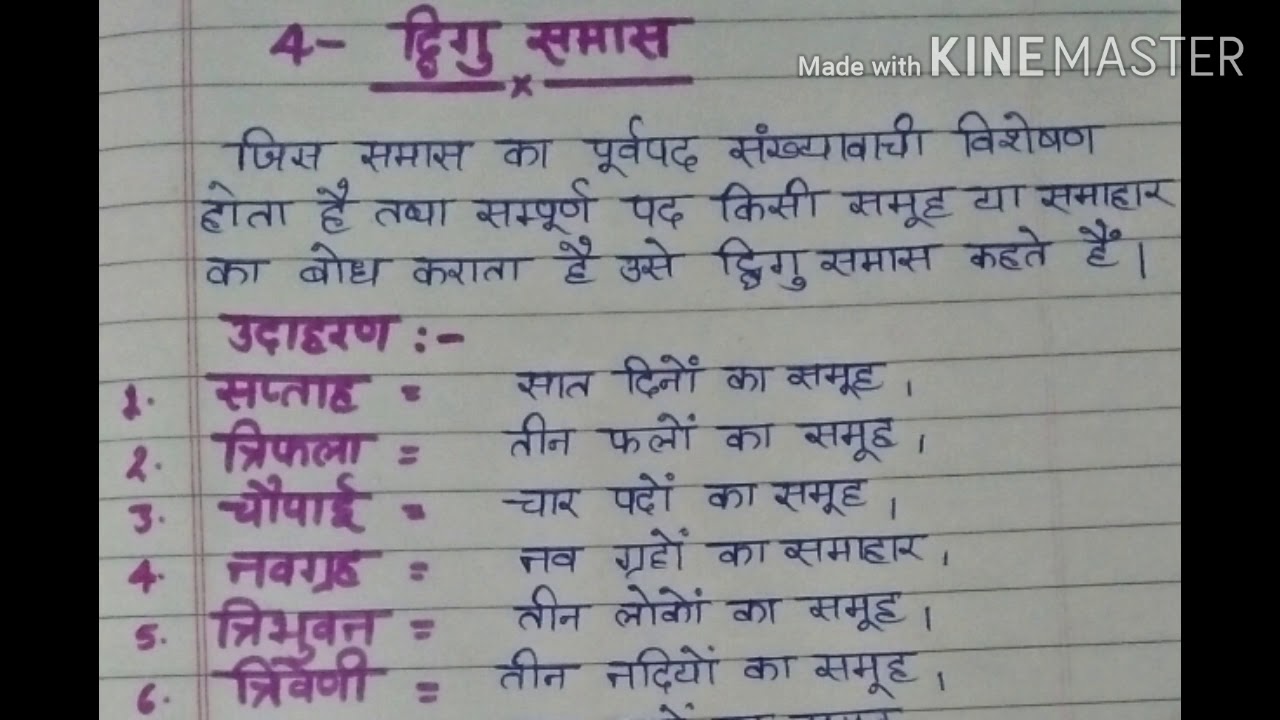 4- द्विगु समास
Made with KINEMASTER
जिस समास का पूर्वपद संख्यावाची विशेषण
होता है तथा सम्पूर्ण पद किसी समूह या समाहार
का बोध कराता है उसे द्विगु समास कहते हैं।
उदाहरण :-
1. सप्ताह = सात दिनों का समूह।
2. त्रिफला = तीन फलों का समूह।
3. चौपाई = चार पदों का समूह।
4. नवग्रह = नव ग्रहों का समाहार।
5. त्रिभुवन = तीन लोकों का समूह।
6. त्रिवेणी = तीन नदियों का समूह।